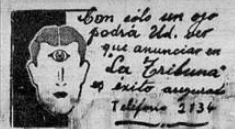 Con sólo un ojo
podrá Ud. ver
que anunciar en
"La Tribuna"
es éxito seguro
Teléfono 2134